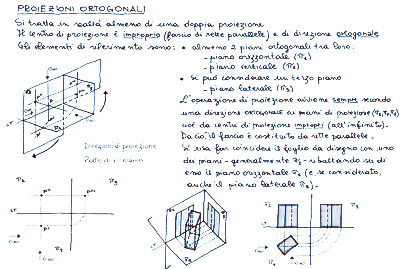 PROIEZIONI ORTOGONALI
Si tratta in realtà almeno di una doppia proiezione
Il centro di proiezione è improprio (fascio di rette parallele) e di direzione ortogonale
Gli elementi di riferimento sono: • almeno 2 piani ortogonali tra loro:
- piano orizzontale (π1)
- piano verticale (π2)
• si può considerare un terzo piano
- piano laterale (π3)
L'operazione di proiezione avviene sempre secondo
una direzione ortogonale ai piani di proiezione (π1, π2, π3)
cioè da centri di proiezione impropri (all'infinito).
Da ciò il fascio è costituito da rette parallele.
Si usa far coincidere il foglio da disegno con uno
dei piani - generalmente π2 - ribaltando su di
esso il piano orizzontale π1 (e se considerato,
anche il piano laterale π3) -
Direzioni di proiezione
π2
π3
LT
π1
π2
π3
LT
π1